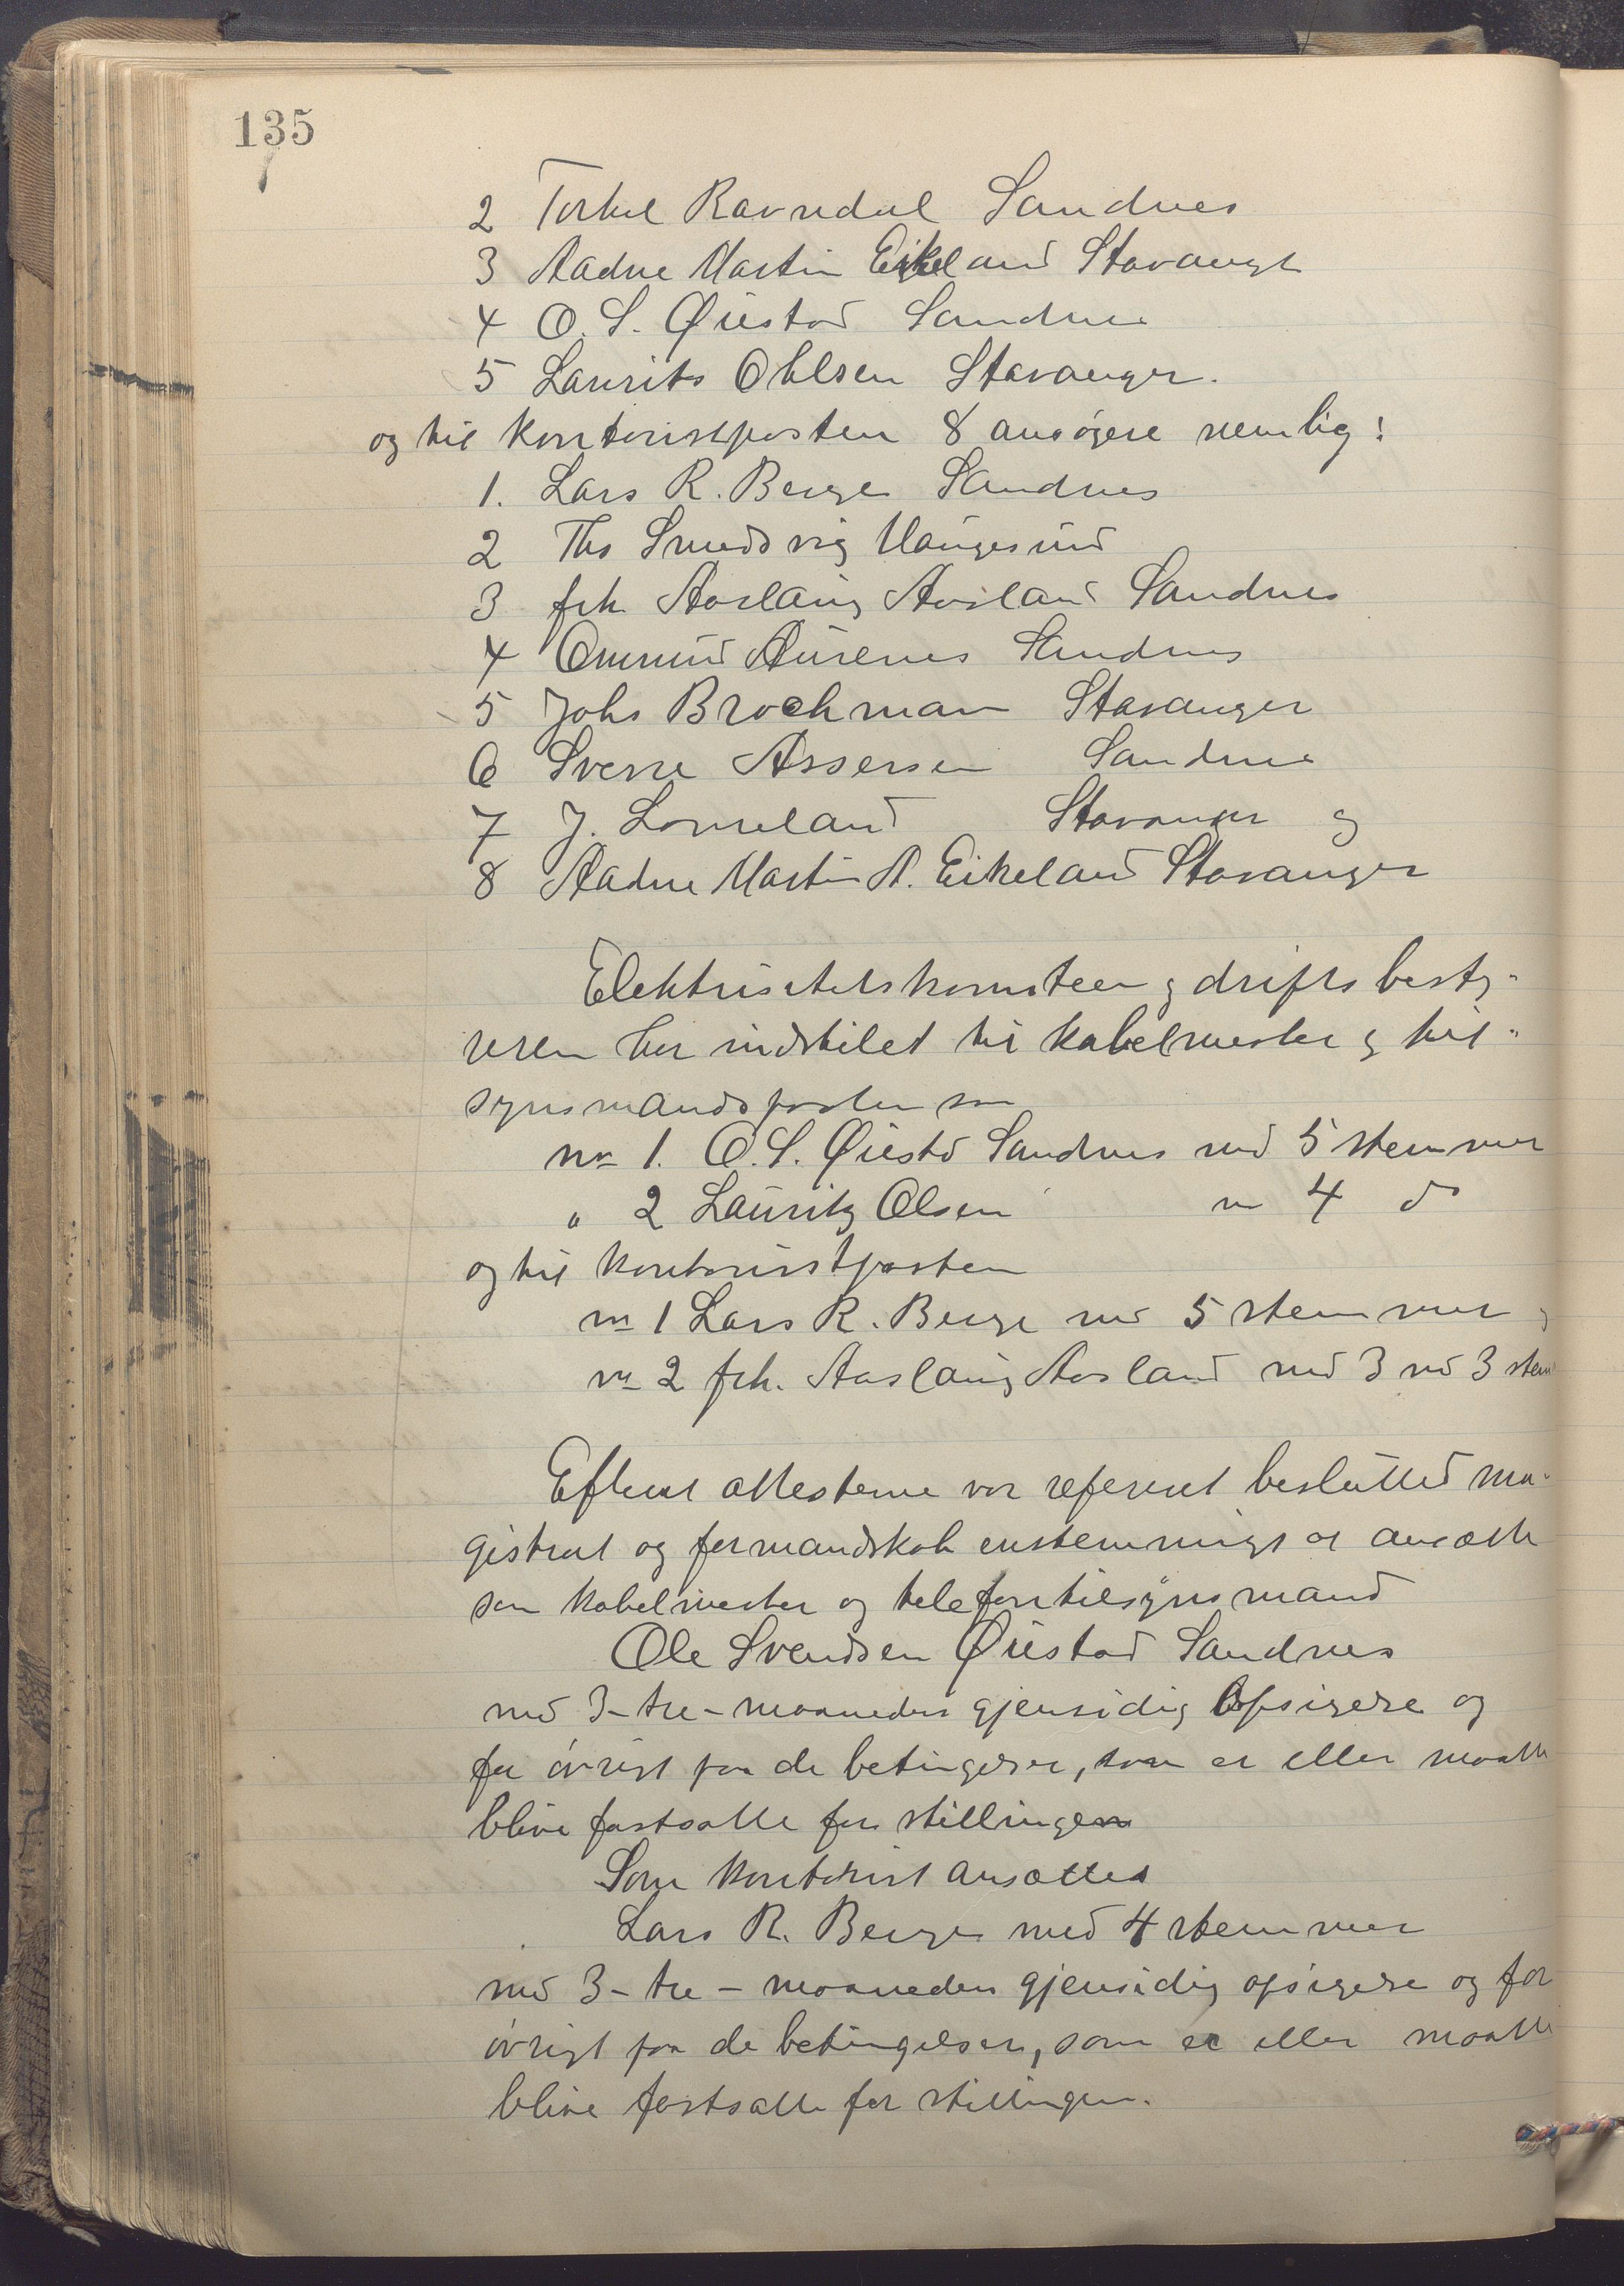 135
2 Torkel Ravndal Sandnes
3 Aadne Martin Eikeland Stavanger
4 O. S. Øiestad Sandnes
5 Laurits Ohlsen Stavanger.
og til kontoristposten 8 ansøgere nemlig:
1. Lars R. Berge Sandnes
2 Ths Smedsvig Haugesund
3 frk. Aaslaug Aasland Sandnes
4 Ommund Aurenes Sandnes
5 Johs Brochmann Stavanger
6 Sverre Assersen Sandnes
7 J. Lomeland Stavanger og
8 Aadne Martin A. Eikeland Stavanger
Elektrisitetskomiteen og driftsbesty-
reren har indstilet til kabelmester og til-
synsmandsposten som
nr 1. O. S. Øiestad Sandnes med 5 stemmer
" 2 Lauritz Olsen m 4 do
og til kontoristposten
nr 1 Lars R. Berge med 5 stemmer og
nr 2 frk. Aaslaug Aasland med 3 med 3 stem
Efterat attesterne var referert beslutted ma-
gistrat og formandskab enstemmigt at ansætte
som kabelmester og telefontilsynsmand
Ole Svendsen Øiestad Sandnes
med 3-tre-maaneders gjensidig opsigelse og
for øvrigt paa de betingelser, som er eller maatte
blive fastsatte for stillingen
Som kontorist ansattes
Lars R. Berge med 4 stemmer
med 3-tre-maaneders gjensidig opsigelse og for
øvrigt paa de betingelser, som er eller maatte
blive fastsatte for stillingen.